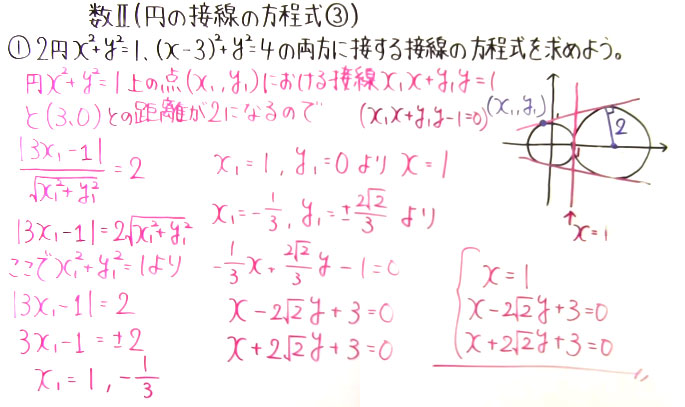 数Ⅱ(円の接線の方程式③)
① 2円x²+y²=1、(x-3)²+y²=4の両方に接する接線の方程式を求めよう。
円x²+y²=1上の点(x₁,y₁)における接線x₁x+y₁y=1
(x₁x+y₁y-1=0)
と(3,0)との距離が2になるので
|3x₁-1|/√(x₁²+y₁²)=2
|3x₁-1|=2√(x₁²+y₁²)
ここでx₁²+y₁²=1より
|3x₁-1|=2
3x₁-1=±2
x₁=1,-1/3
x₁=1,y₁=0よりx=1
x₁=-1/3,y₁=±2√2/3より
-1/3x+2√2/3y-1=0
x-2√2y+3=0
x+2√2y+3=0
(x₁,y₁)
2
x=1
x=1
x-2√2y+3=0
x+2√2y+3=0